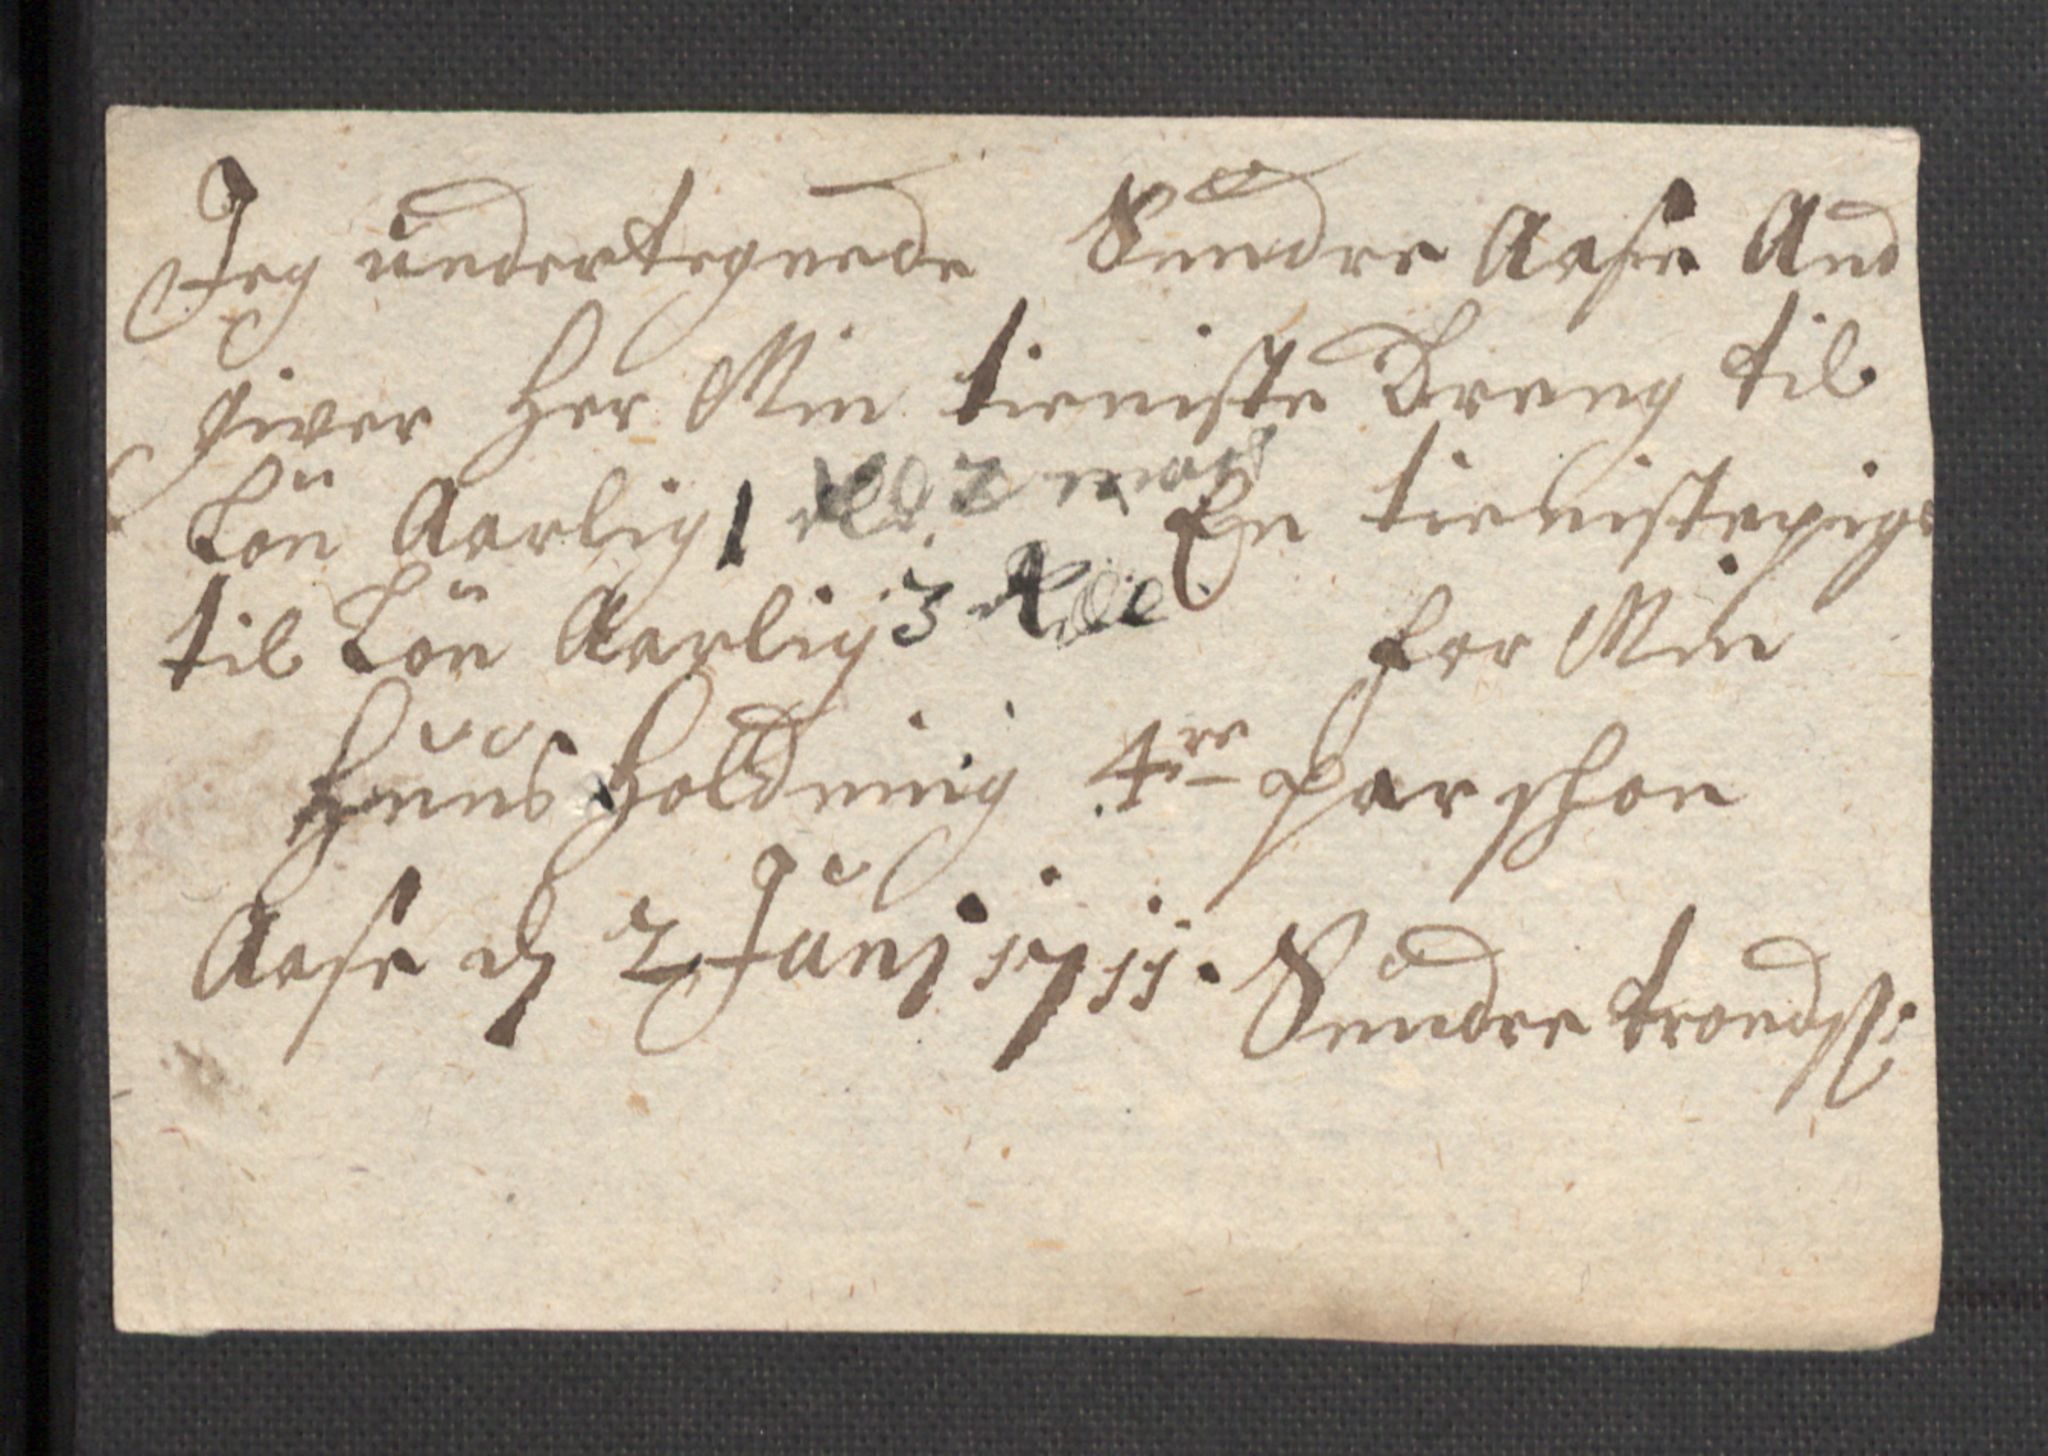 Jeg undertegnede Sendre Aase And
giver Her Min tieniste Dreng til
Lön Aarlig 1 2 mark En tienistepige
til Lön Aarlig 3 for Min
Huus Holdning 4re Parshon
Aase d 2 Junj 1711. Sendre trondss: